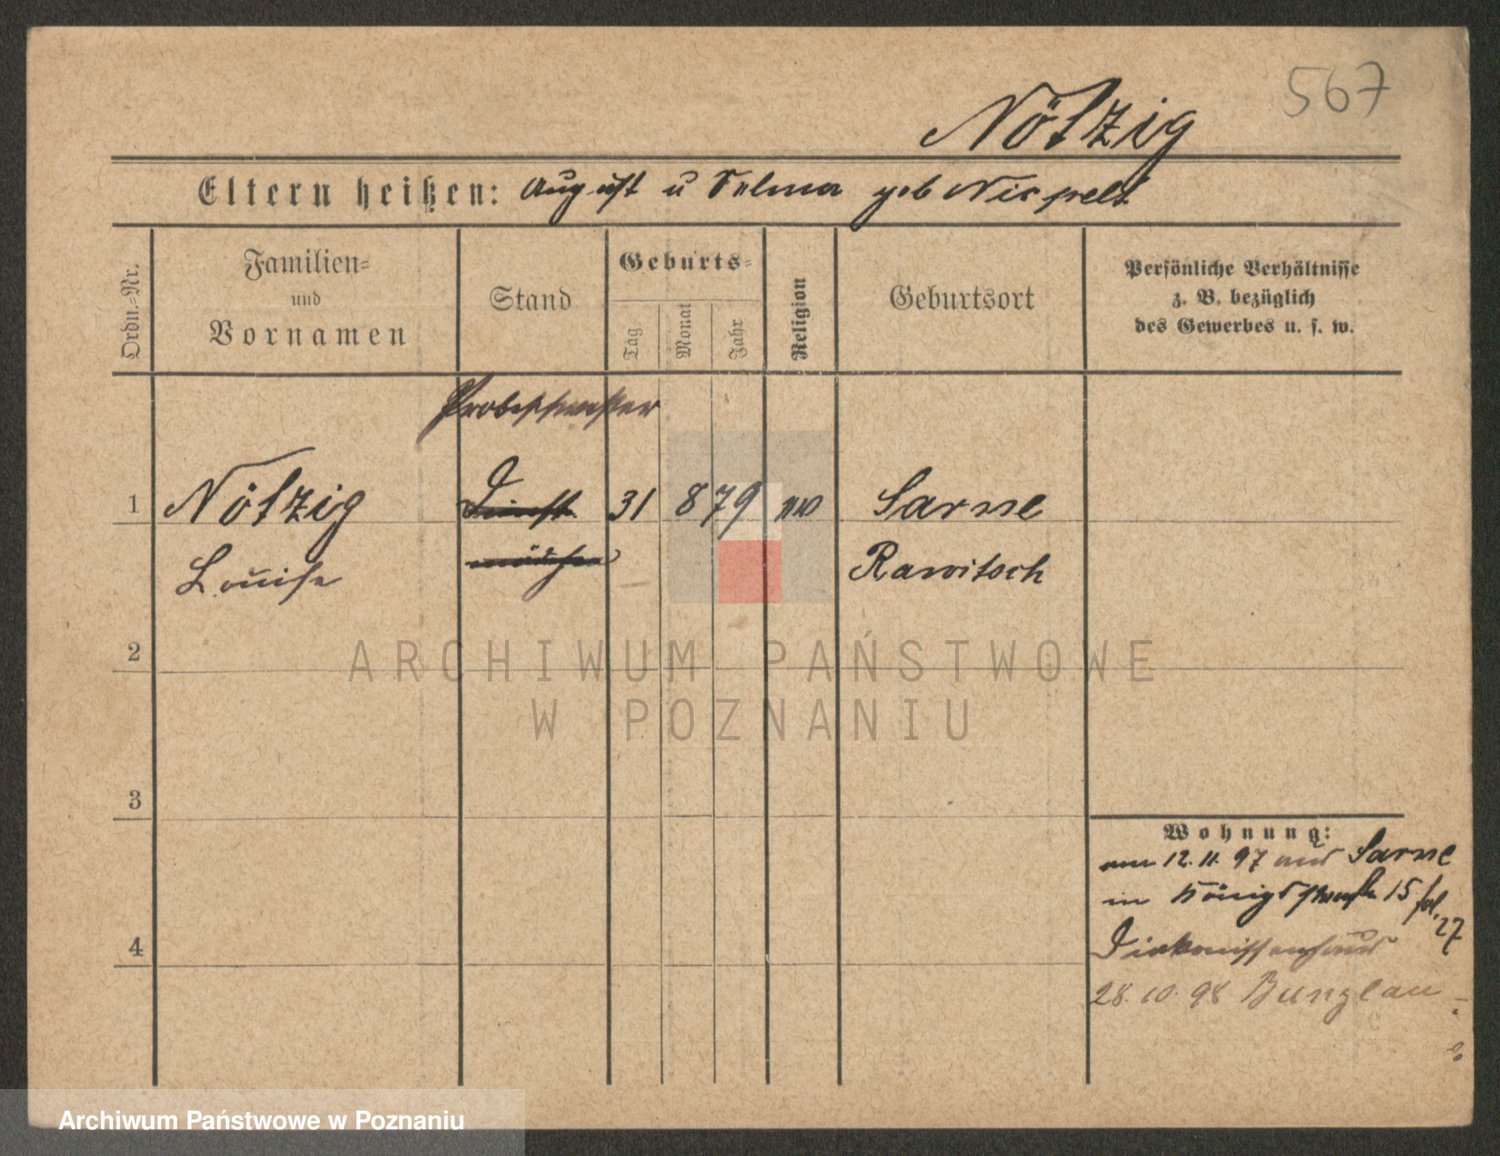 567
Nötzig
Eltern heißen: August u Selma geb Nispelt
Ordn.-Nr.
Familien-
und
Vornamen
Stand
Geburts-
Tag
Monat
Jahr
Religion
Geburtsort
Persönliche Verhältnisse
z. B. bezüglich
des Gewerbes u. s. w.
Probeschwester
1 Nötzig Dienst 31 8 79 Sarne
Louise mädchen Rawitsch
2
3
4
Wohnung:
am 12.11.97 aus Sarne
in Königstraße 15 fol. 27
Diakonissenhaus
28.10.98 Bunzlau
ARCHIWUM PAŃSTWOWE
W POZNANIU
Archiwum Państwowe w Poznaniu